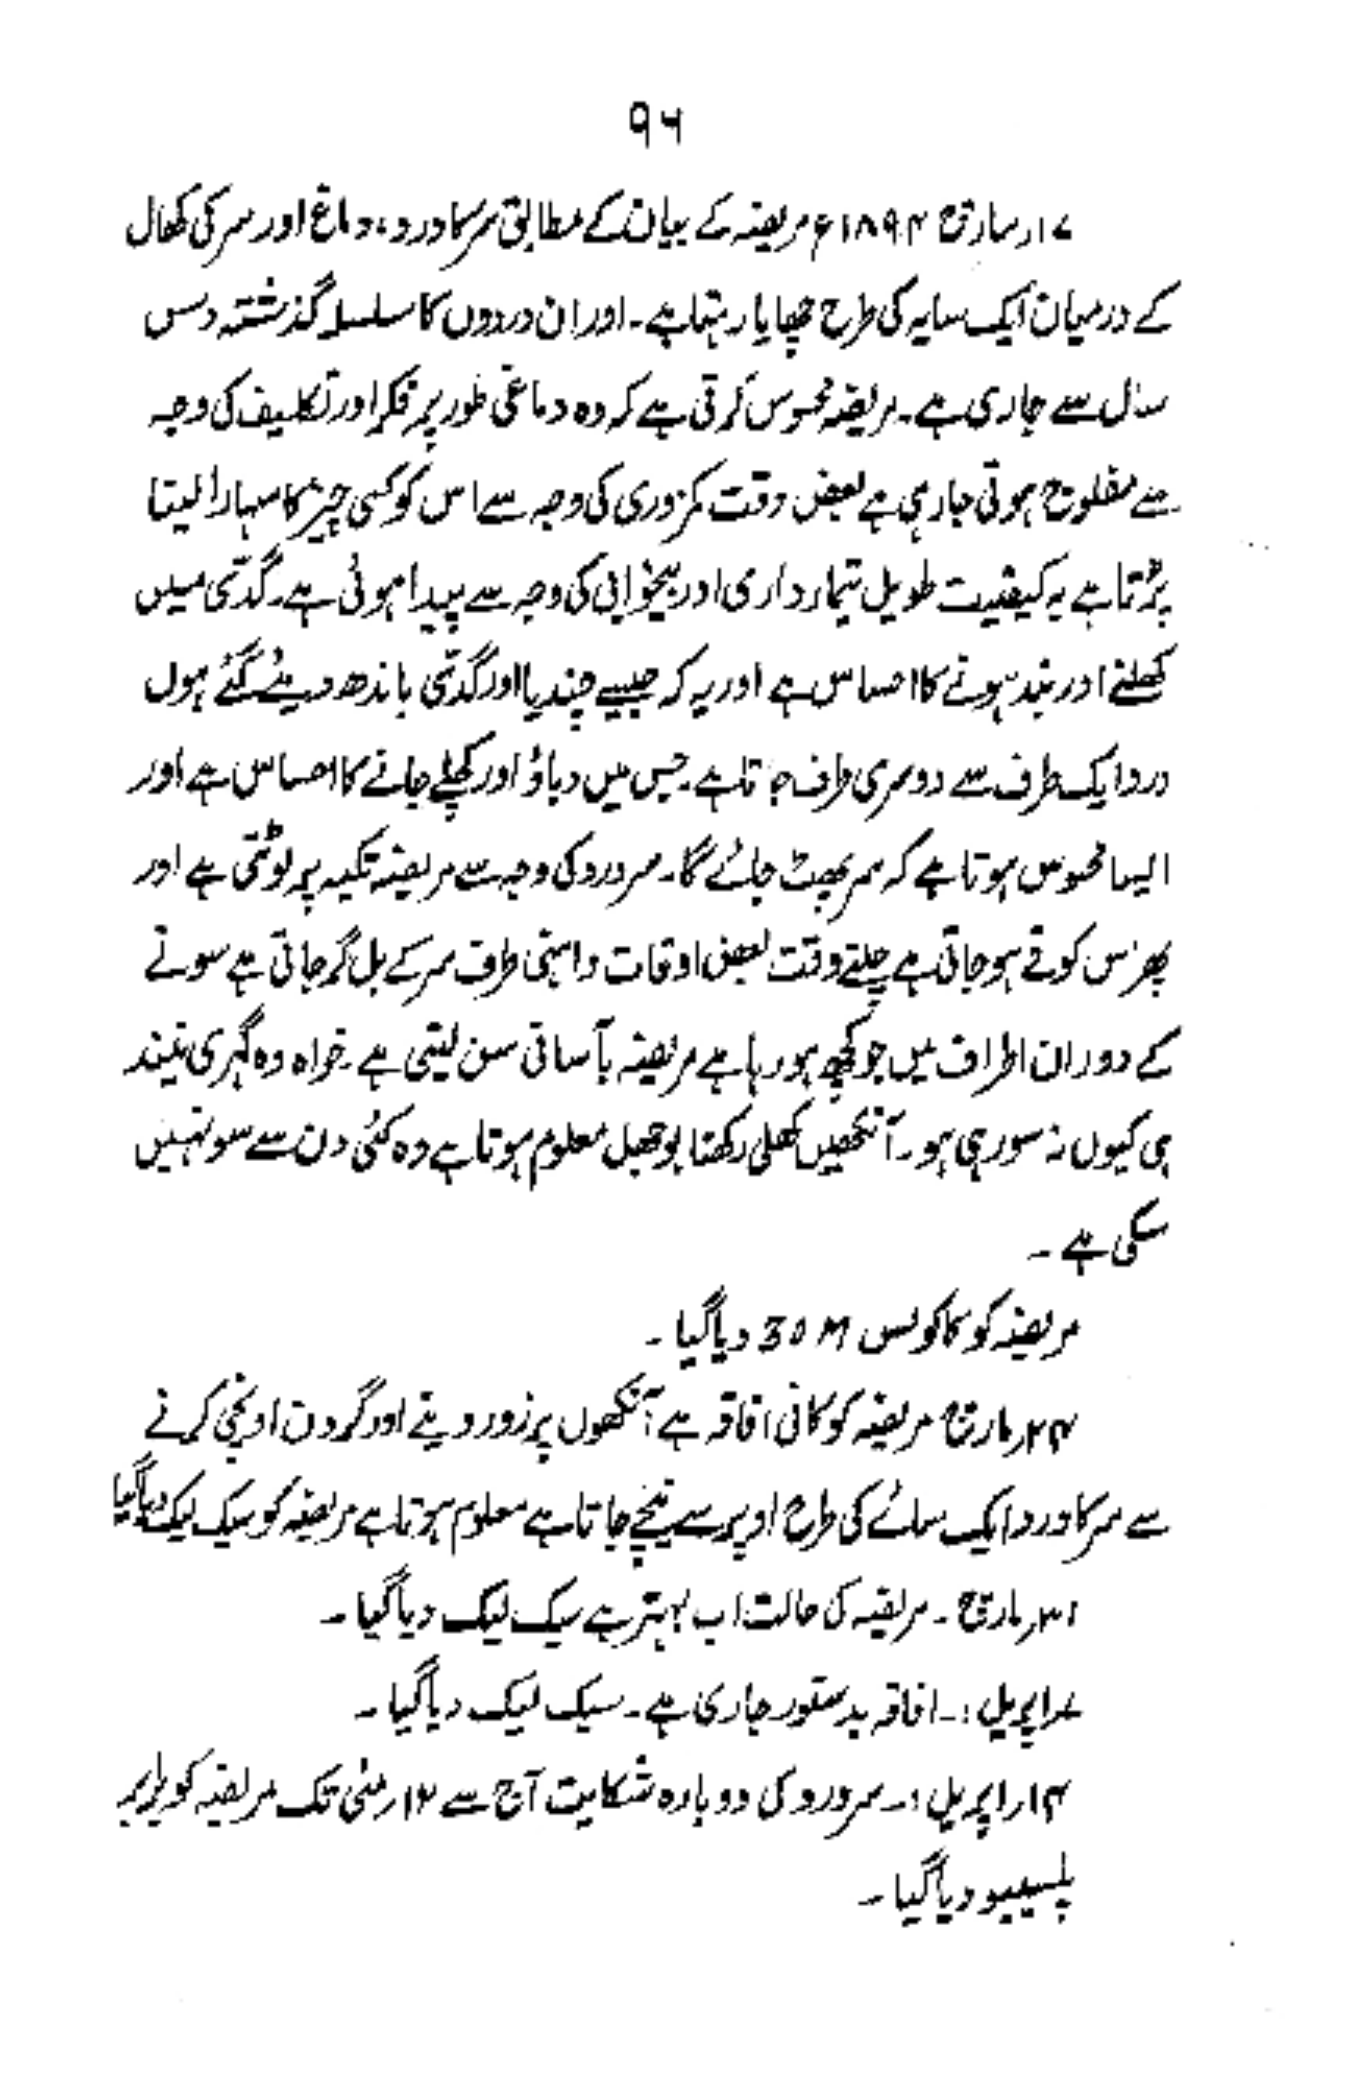 ۹۶
۱۷؍مارچ ۱۸۹۴ء مریضہ کے بیان کے مطابق سر کا درد، دماغ اور سر کی کھال
کے درمیان ایک سایہ کی طرح چھایا رہتا ہے۔ اور ان دردوں کا سلسلہ گذشتہ دس
سال سے جاری ہے۔ مریضہ محسوس کرتی ہے کہ وہ دماغی طور پر فکر اور تکلیف کی وجہ
سے مفلوج ہوتی جا رہی ہے بعض وقت کمزوری کی وجہ سے اس کو کسی چیز کا سہارا لیتا
پڑتا ہے یہ کیفیت طویل تیمارداری اور بیخوابی کی وجہ سے پیدا ہوئی ہے۔ گدّی میں
کھلنے اور بند ہونے کا احساس ہے اور یہ کہ جیسے چندیا اور گدّی باندھ دیئے گئے ہوں
درد ایک طرف سے دوسری طرف جاتا ہے جس میں دباؤ اور کچلے جانے کا احساس ہے اور
ایسا محسوس ہوتا ہے کہ سر پھٹ جائے گا۔ سر درد کی وجہ سے مریضہ تکیہ پر لوٹتی ہے اور
پھر اس کو قے ہو جاتی ہے چلتے وقت بعض اوقات داہنی طرف سر کے بل گر جاتی ہے سونے
کے دوران اطراف میں جو کچھ ہو رہا ہے مریضہ بآسانی سن لیتی ہے۔ خواہ وہ گہری نیند
ہی کیوں نہ سو رہی ہو۔ آنکھیں کھلی رکھنا بوجھل معلوم ہوتا ہے وہ کئی دن سے سو نہیں
سکی ہے۔
مریضہ کو کاکولس 30 M دیا گیا۔
۲۴؍مارچ مریضہ کو کافی افاقہ ہے آنکھوں پر زور دینے اور گردن اونچی کرنے
سے سر کا درد ایک سائے کی طرح اوپر سے نیچے جاتا ہے معلوم ہوتا ہے مریضہ کو سیک لیک دیا گیا
۳۱؍مارچ۔ مریضہ کی حالت اب بہتر ہے سیک لیک دیا گیا۔
۷؍اپریل :۔ افاقہ بدستور جاری ہے۔ سیک لیک دیا گیا۔
۱۴؍اپریل :۔ سر درد کی دوبارہ شکایت آج سے ۱۲؍مئی تک مریضہ کو برابر
پلسیبیو دیا گیا۔